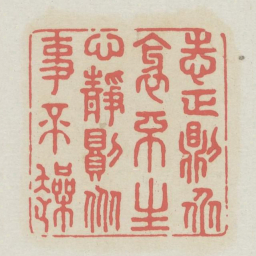 志正則衆
衺不生
心靜則衆
事不躁